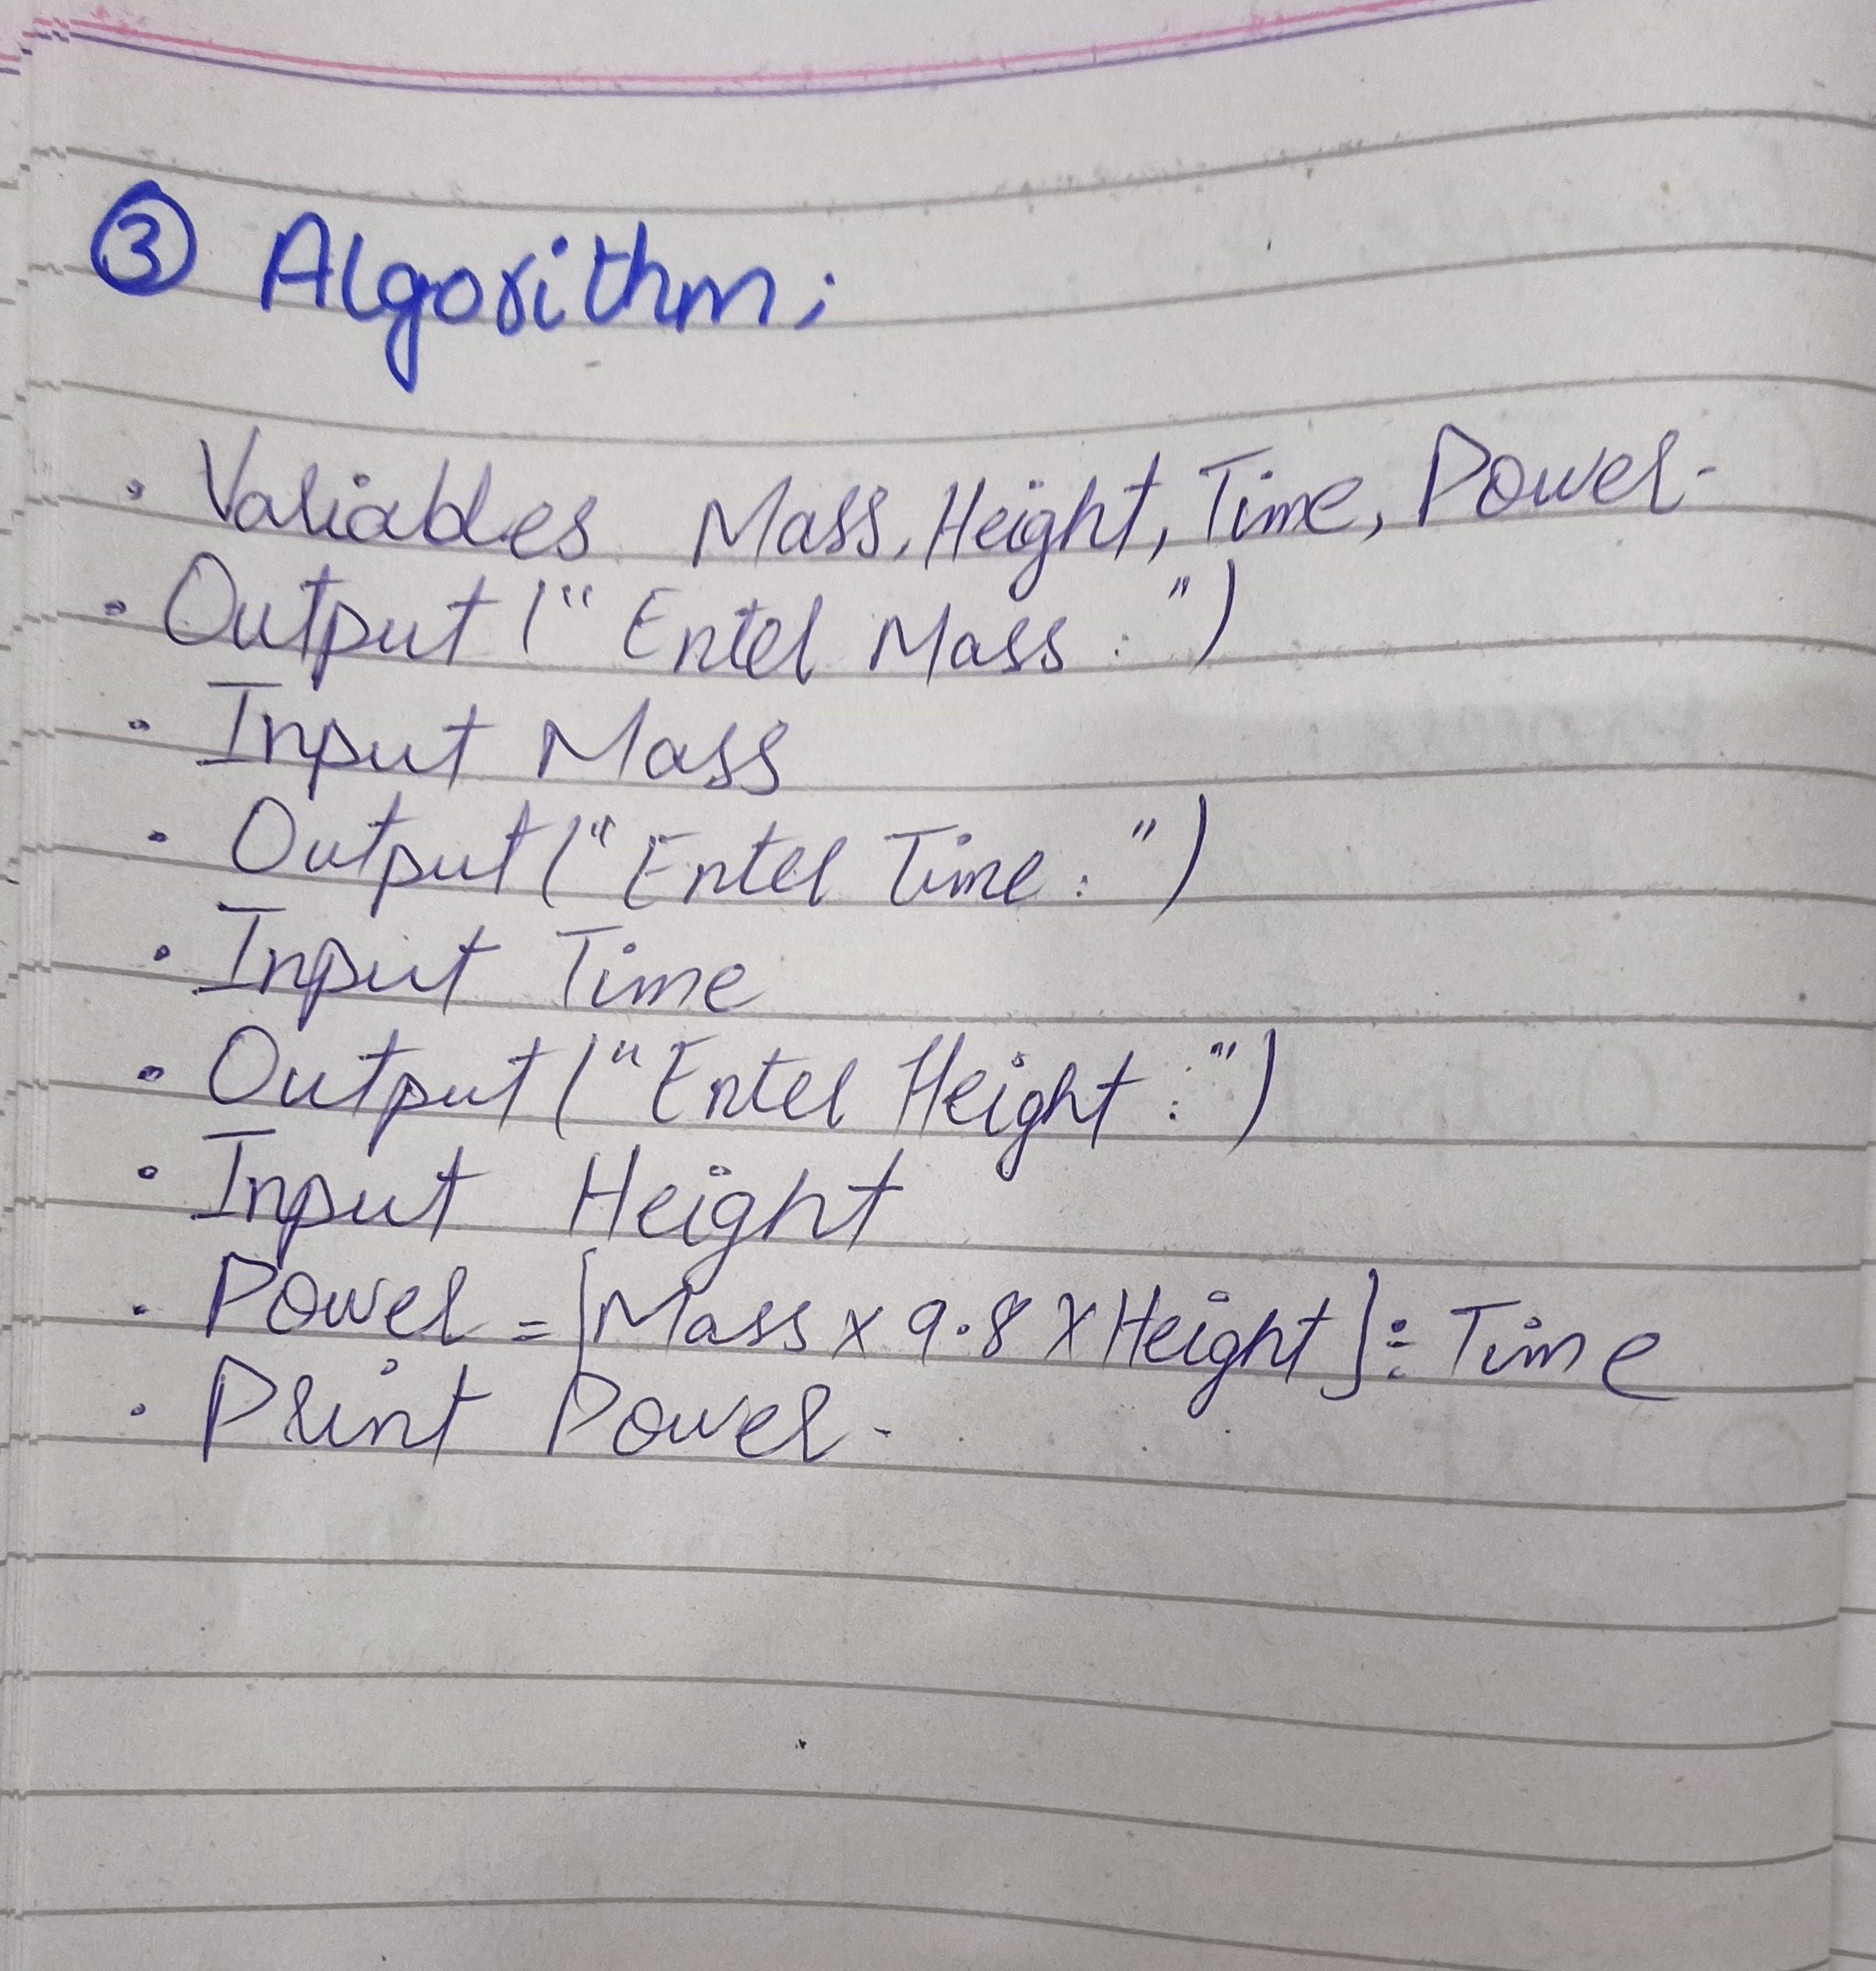 ③ Algorithm:
• Variables Mass, Height, Time, Power.
• Output (" Enter Mass : ")
• Input Mass
• Output ("Enter Time : ")
• Input Time
• Output ("Enter Height : ")
• Input Height
• Power = [Mass x 9.8 x Height] ÷ Time
• Print Power.